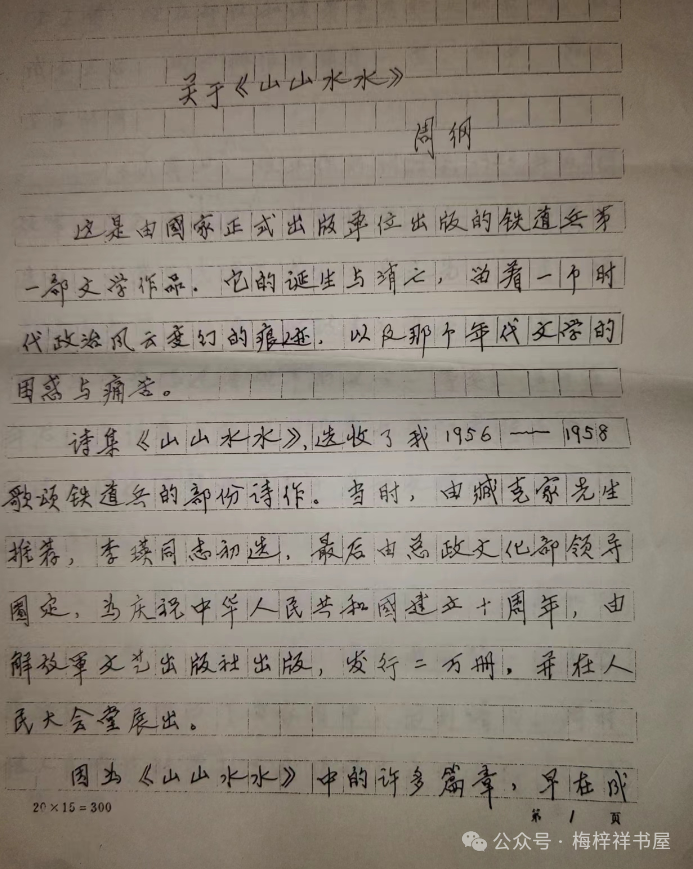 关于《山山水水》
周纲
这是由國家正式出版单位出版的铁道兵第
一部文学作品。它的诞生与消亡，留着一个时
代政治风云变幻的痕迹，以及那个年代文学的
困惑与痛苦。
诗集《山山水水》，选收了我1956——1958
歌颂铁道兵的部份诗作。当时，由臧克家先生
推荐，李瑛同志初选，最后由总政文化部领导
圈定，为庆祝中华人民共和國建立十周年，由
解放軍文艺出版社出版，发行二万册，并在人
民大会堂展出。
因为《山山水水》中的许多篇章，早在成
20×15=300
第 1 頁
公众号·梅梓祥书屋